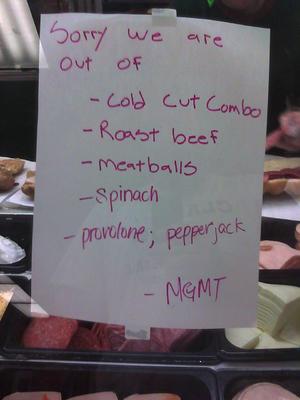 Sorry we are
out of
- Cold Cut Combo
- Roast beef
- meatballs
- Spinach
- provolone; pepperjack
- MGMT